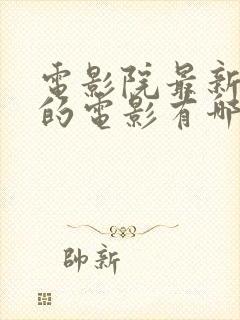 電影院最新
的電影有哪
帥新